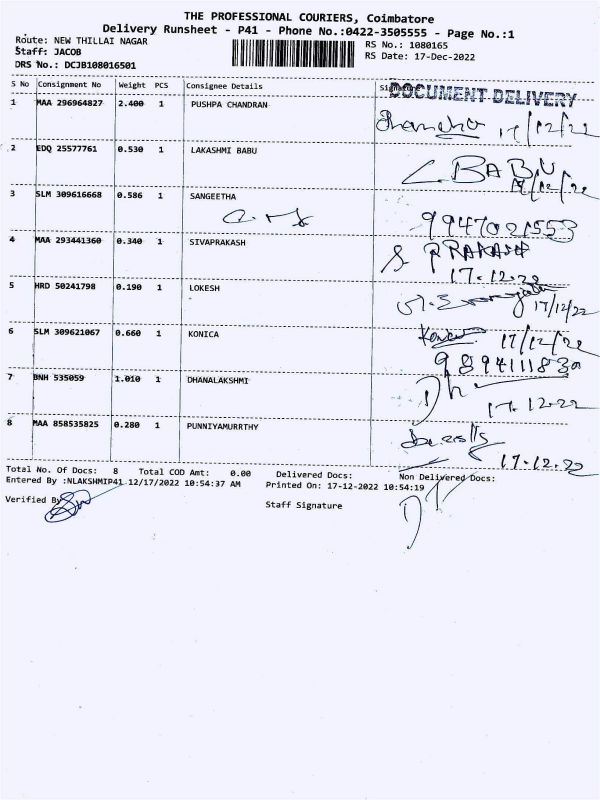 THE PROFESSIONAL COURIERS, Coimbatore
Delivery Runsheet - P41 - Phone No.:0422-3505555 - Page No.:1
Route: NEW THILLAI NAGAR
RS No.: 1080165
Staff: JACOB
RS Date: 17-Dec-2022
DRS No.: DCJB108016501
S No Consignment No Weight PCS Consignee Details Signature
DOCUMENT DELIVERY
1 MAA 296964827 2.400 1 PUSHPA CHANDRAN
17/12/22
2 EDQ 25577761 0.530 1 LAKASHMI BABU
L BABU
17/12/22
3 SLM 309616668 0.586 1 SANGEETHA
9947021553
4 MAA 293441360 0.340 1 SIVAPRAKASH
S PRAKASH
17.12.22
5 HRD 50241798 0.190 1 LOKESH
17/12/22
6 SLM 309621067 0.660 1 KONICA
17/12/22
7 BNH 535059 1.010 1 DHANALAKSHMI
17.12.22
8 MAA 858535825 0.280 1 PUNNIYAMURRTHY
17.12.22
Total No. Of Docs: 8 Total COD Amt: 0.00 Delivered Docs: Non Delivered Docs:
Entered By :NLAKSHMIP41 12/17/2022 10:54:37 AM Printed On: 17-12-2022 10:54:19
Verified By
Staff Signature